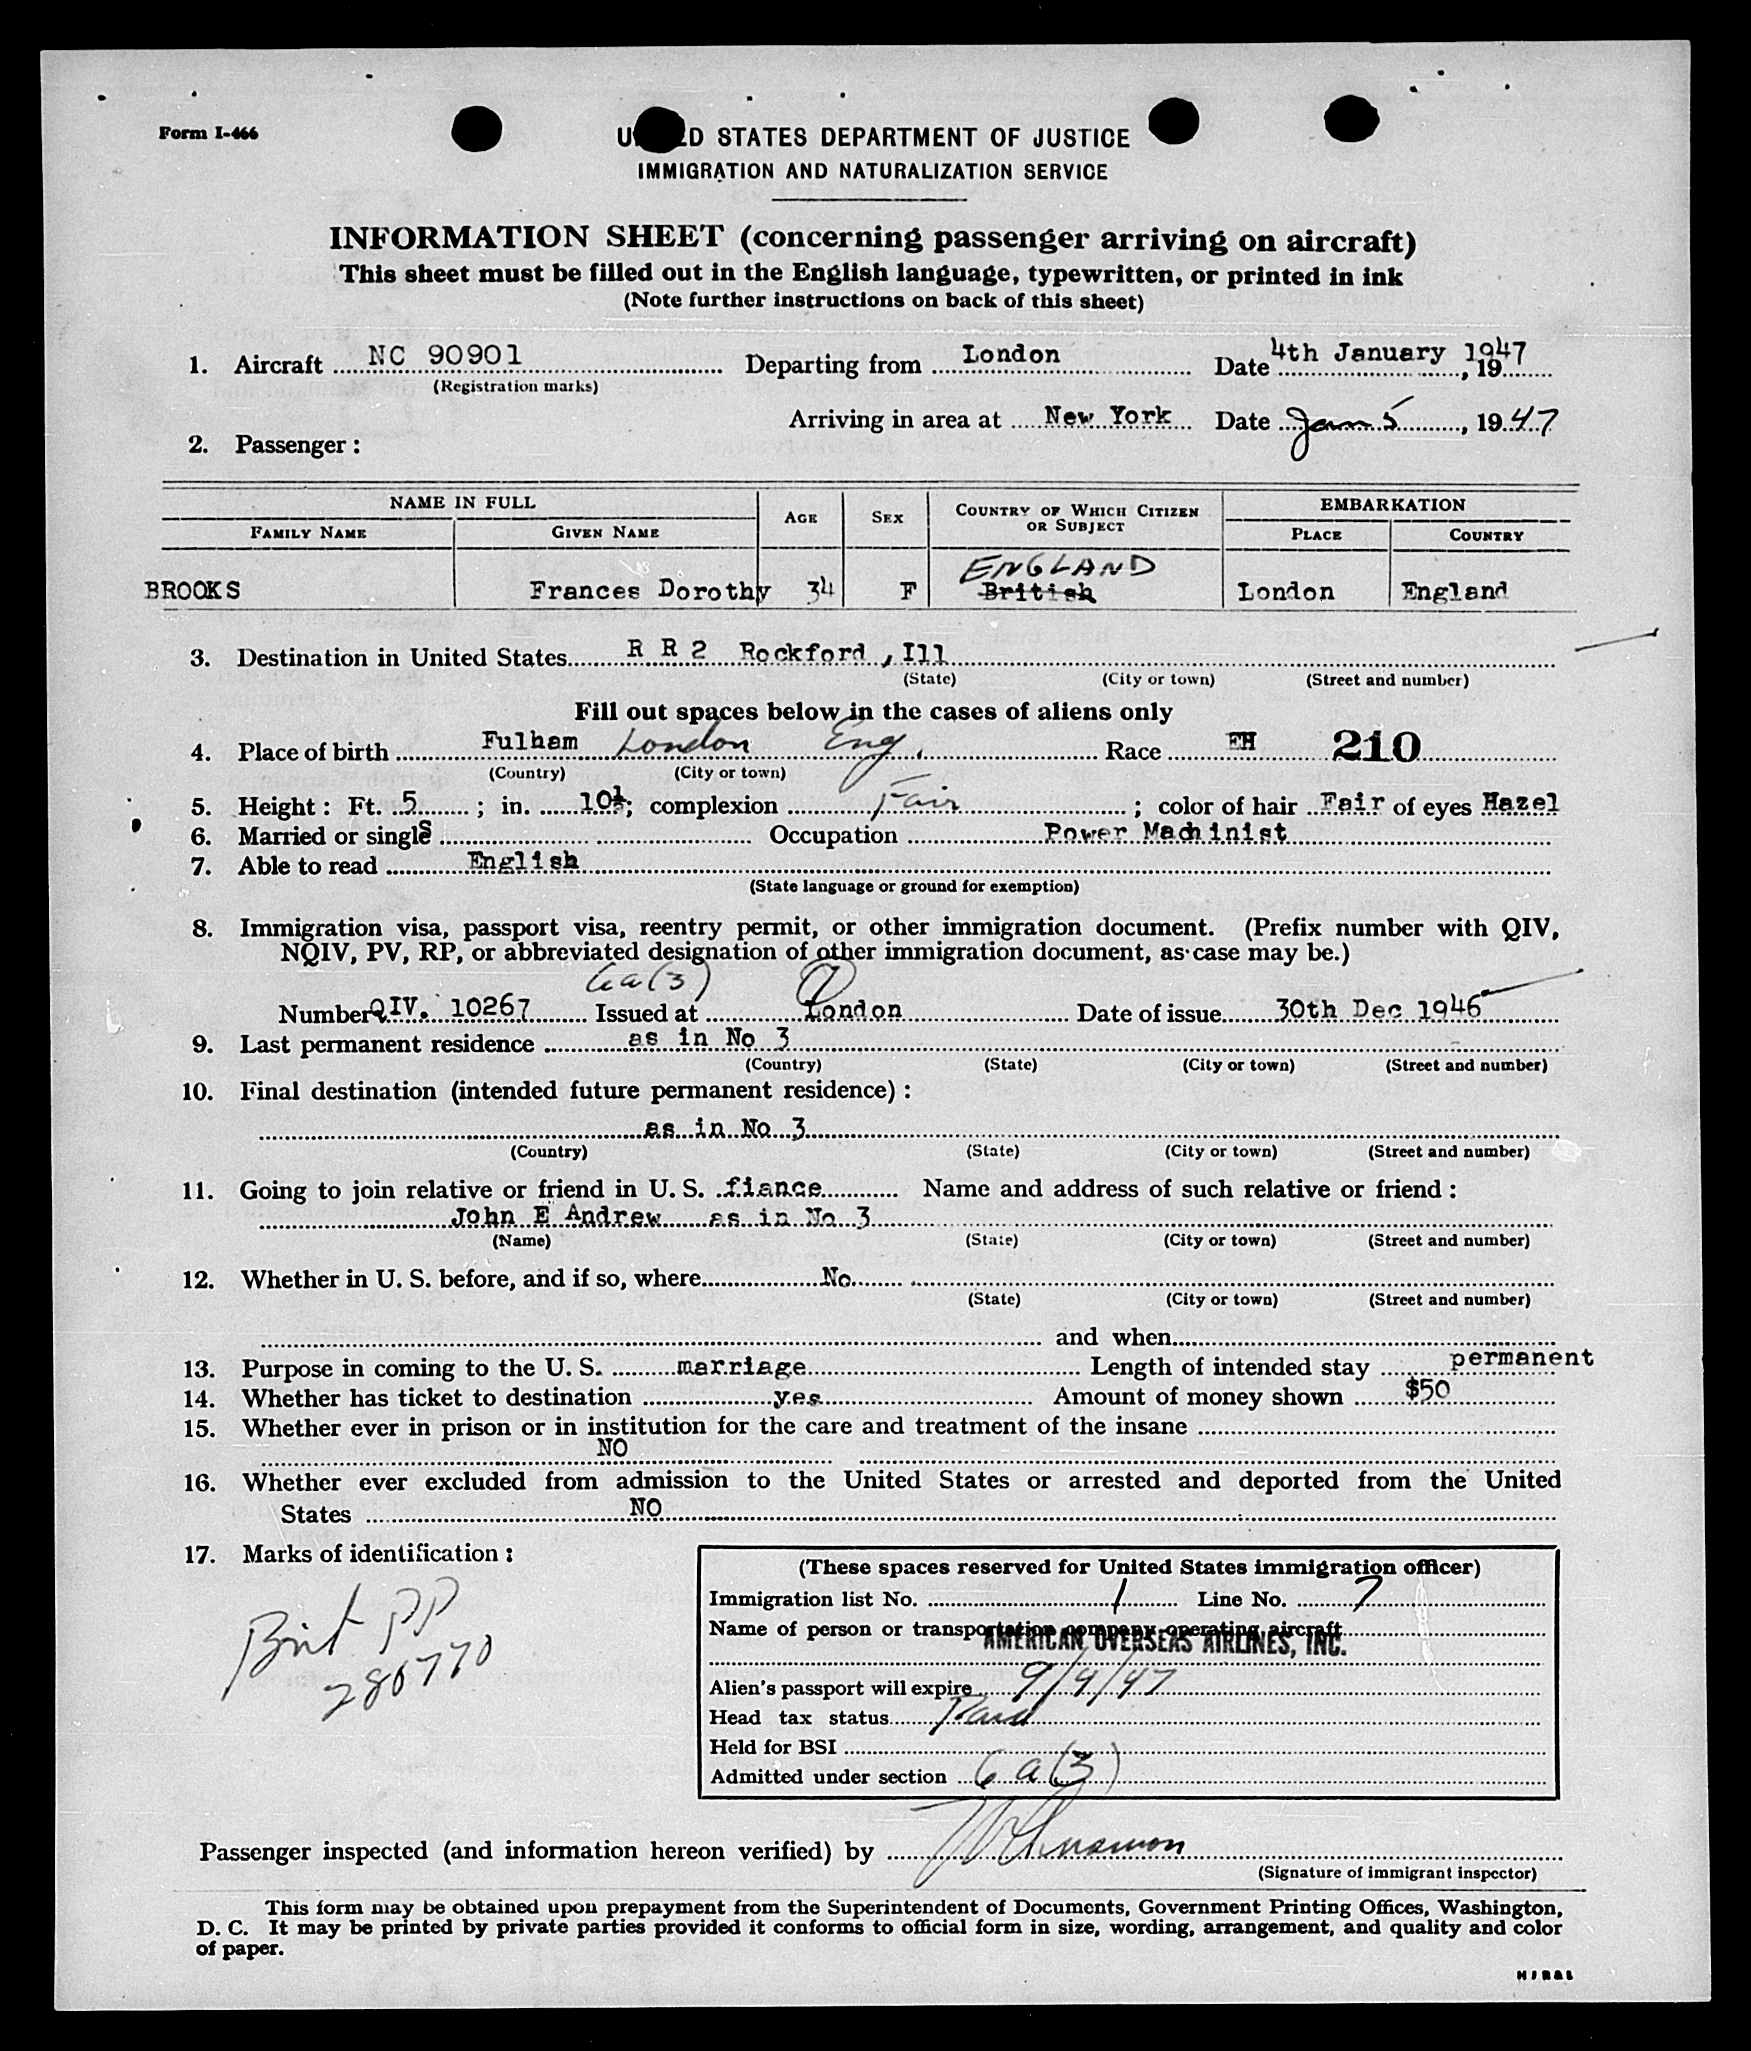 Form I-466
UNITED STATES DEPARTMENT OF JUSTICE
IMMIGRATION AND NATURALIZATION SERVICE
INFORMATION SHEET (concerning passenger arriving on aircraft)
This sheet must be filled out in the English language, typewritten, or printed in ink
(Note further instructions on back of this sheet)
1. Aircraft NC 90901 Departing from London Date 4th January 1947, 19
(Registration marks)
Arriving in area at New York Date Jan 5, 1947
2. Passenger:
NAME IN FULL AGE SEX COUNTRY OF WHICH CITIZEN OR SUBJECT EMBARKATION
FAMILY NAME GIVEN NAME PLACE COUNTRY
ENGLAND
BROOKS Frances Dorothy 34 F British London England
3. Destination in United States R R 2 Rockford, Ill
(State) (City or town) (Street and number)
Fill out spaces below in the cases of aliens only
4. Place of birth Fulham London Eng. Race EH 210
(Country) (City or town)
5. Height: Ft. 5; in. 10½; complexion Fair; color of hair Fair of eyes Hazel
6. Married or single S Occupation Power Machinist
7. Able to read English
(State language or ground for exemption)
8. Immigration visa, passport visa, reentry permit, or other immigration document. (Prefix number with QIV,
NQIV, PV, RP, or abbreviated designation of other immigration document, as case may be.)
6a(3)
Number QIV. 10267 Issued at London Date of issue 30th Dec 1946
9. Last permanent residence as in No 3
(Country) (State) (City or town) (Street and number)
10. Final destination (intended future permanent residence):
as in No 3
(Country) (State) (City or town) (Street and number)
11. Going to join relative or friend in U. S. fiance Name and address of such relative or friend:
John E Andrew as in No 3
(Name) (State) (City or town) (Street and number)
12. Whether in U. S. before, and if so, where No
(State) (City or town) (Street and number)
and when
13. Purpose in coming to the U. S. marriage Length of intended stay permanent
14. Whether has ticket to destination yes Amount of money shown $50
15. Whether ever in prison or in institution for the care and treatment of the insane
NO
16. Whether ever excluded from admission to the United States or arrested and deported from the United
States NO
17. Marks of identification:
Brit PP
286770
(These spaces reserved for United States immigration officer)
Immigration list No. 1 Line No. 7
Name of person or transportation company operating aircraft
AMERICAN OVERSEAS AIRLINES, INC.
Alien's passport will expire 9/4/47
Head tax status Paid
Held for BSI
Admitted under section 6a(3)
Passenger inspected (and information hereon verified) by
(Signature of immigrant inspector)
This form may be obtained upon prepayment from the Superintendent of Documents, Government Printing Offices, Washington,
D. C. It may be printed by private parties provided it conforms to official form in size, wording, arrangement, and quality and color
of paper.